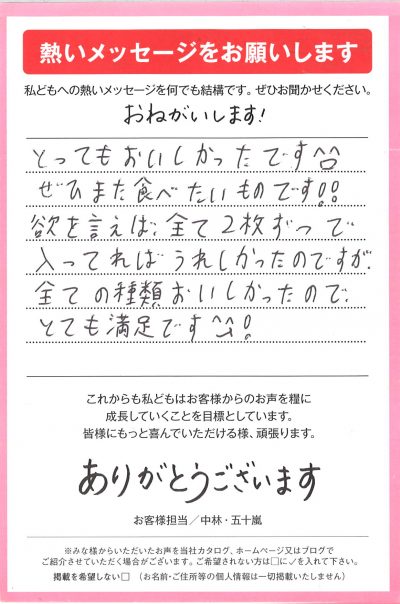 熱いメッセージをお願いします
私どもへの熱いメッセージを何でも結構です。ぜひお聞かせください。
おねがいします!
とってもおいしかったです^^
ぜひまた食べたいものです!!
欲を言えば、全て2枚ずつで
入ってればうれしかったのですが、
全ての種類おいしかったので、
とても満足です^^!
これからも私どもはお客様からのお声を糧に
成長していくことを目標としています。
皆様にもっと喜んでいただける様、頑張ります。
ありがとうございます
お客様担当／中林・五十嵐
※みな様からいただいたお声を当社カタログ、ホームページ又はブログで
ご紹介させていただく場合がございます。ご希望されない方は□に✓を入れて下さい。
掲載を希望しない□ （お名前・ご住所等の個人情報は一切掲載いたしません）